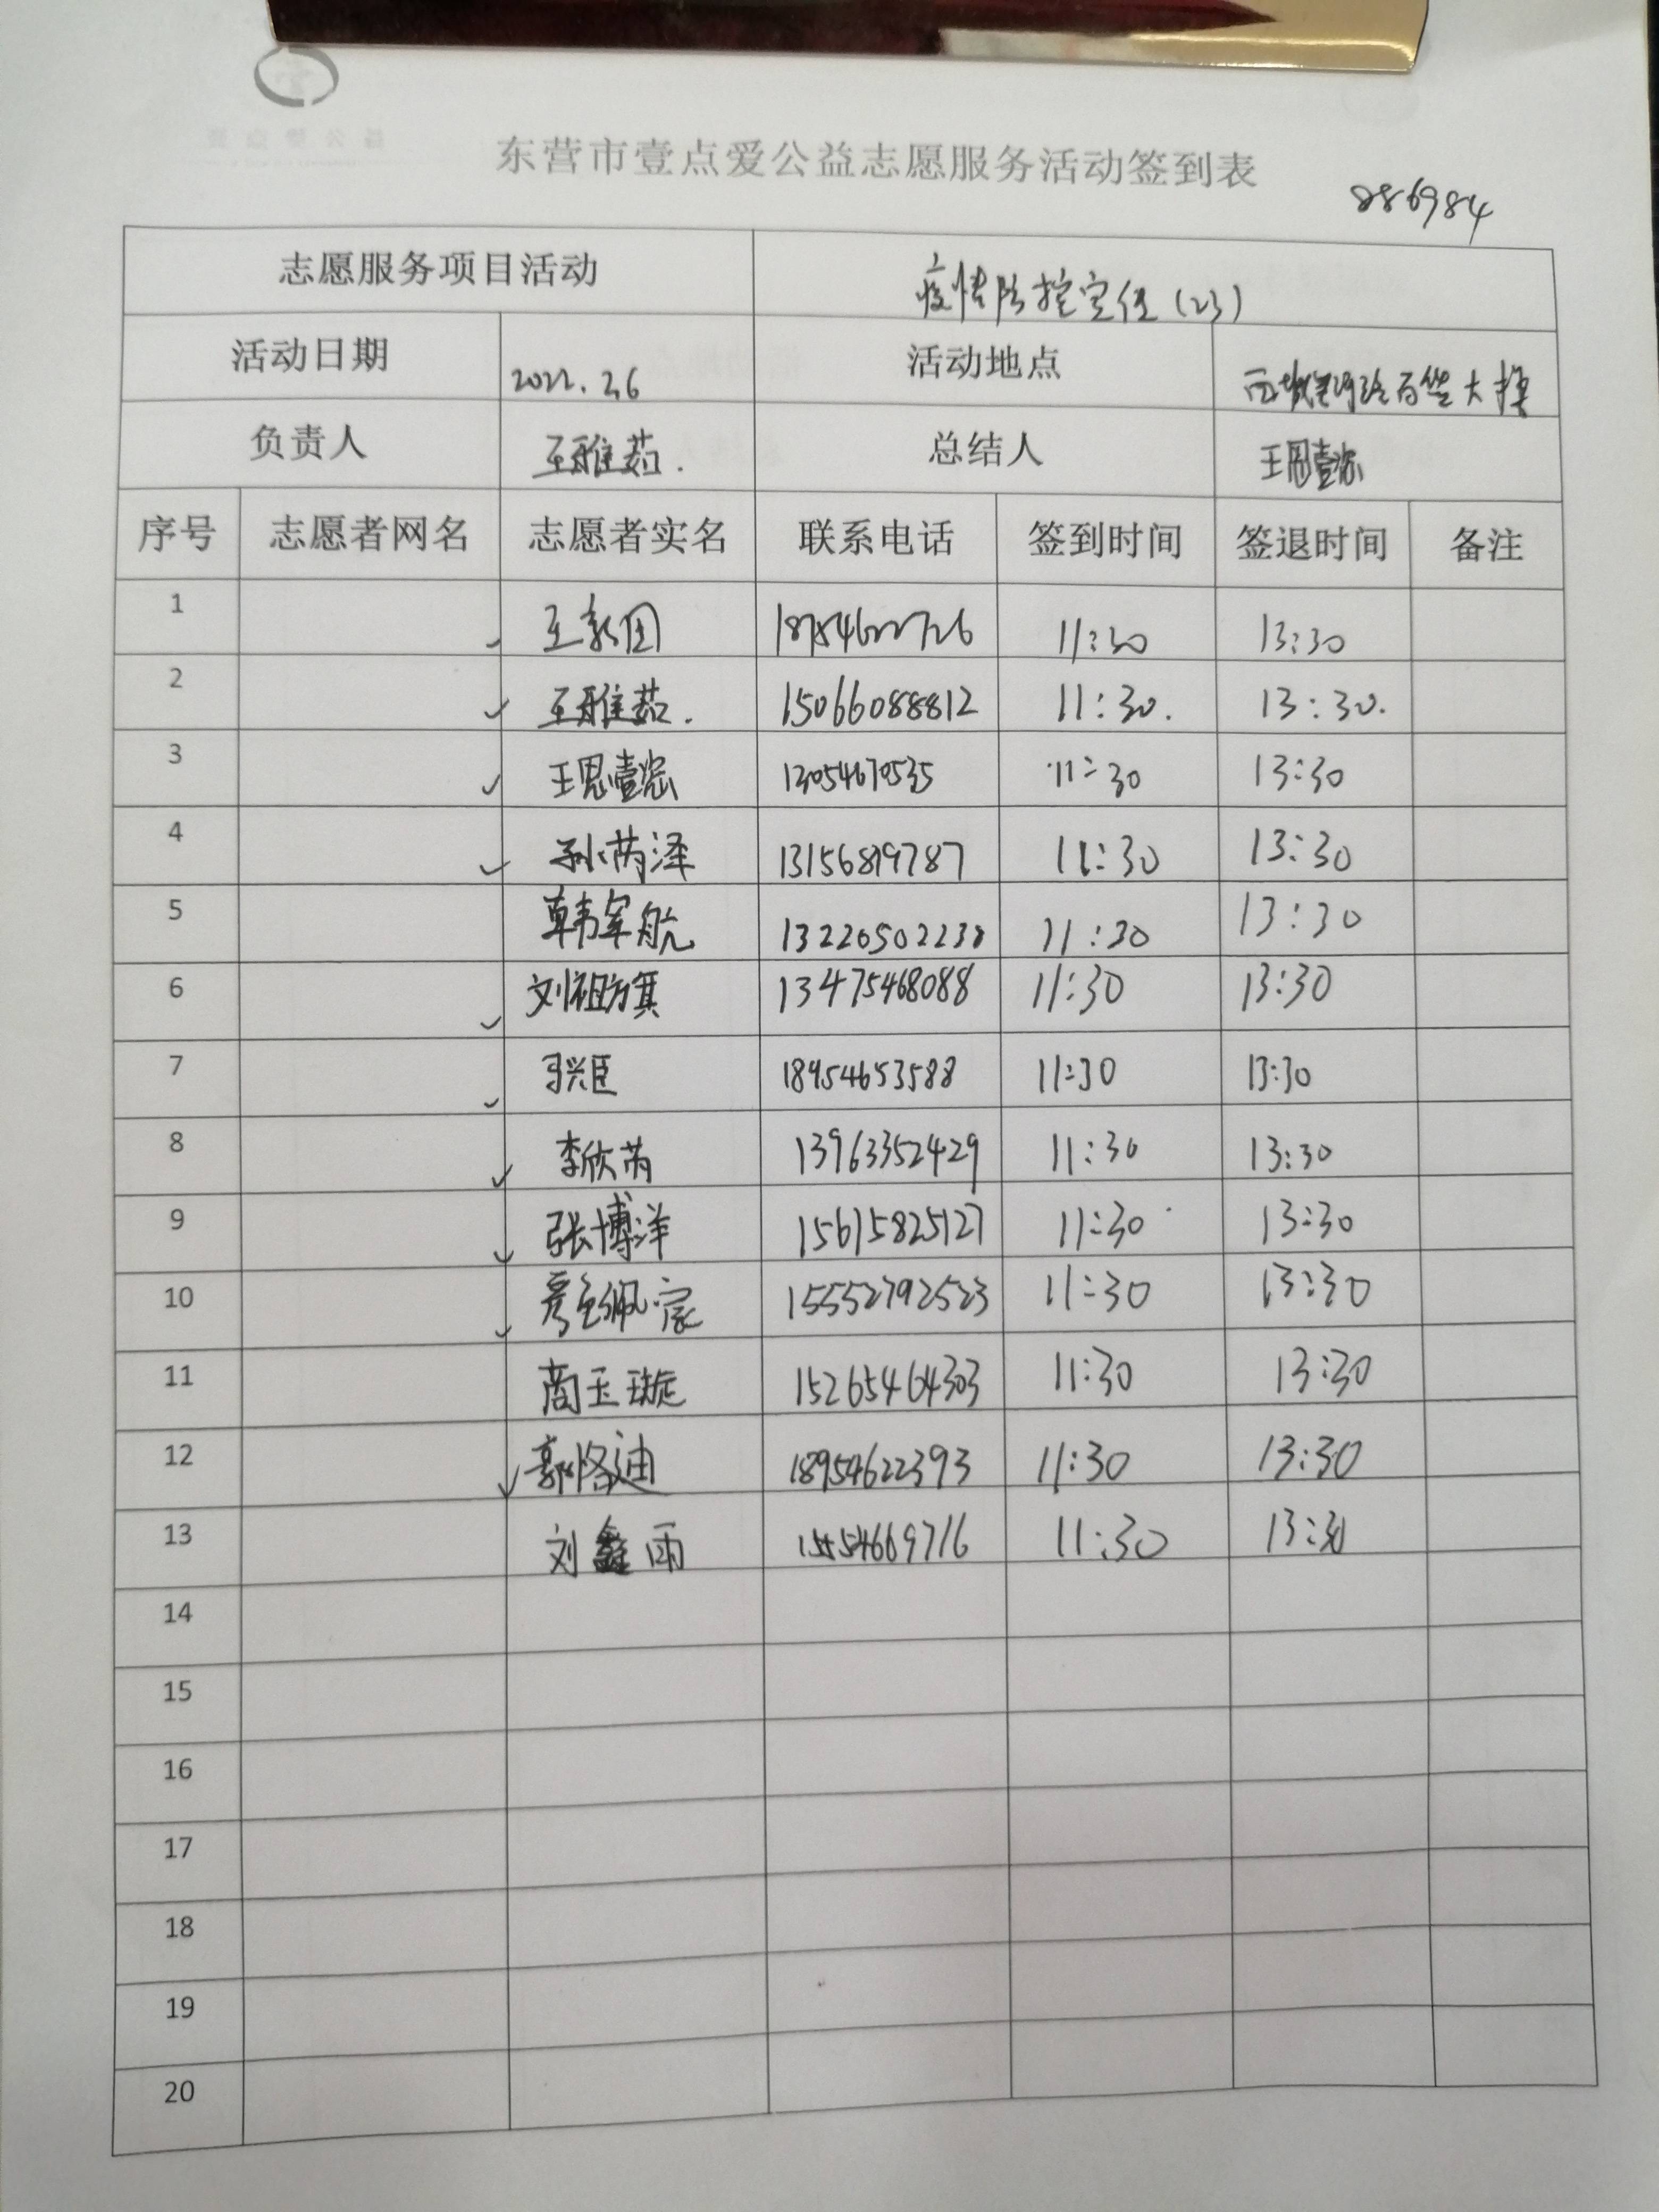 东营市壹点爱公益志愿服务活动签到表
886984
志愿服务项目活动 疫情防控宣传(23)
活动日期 2022.2.6 活动地点 西城 百华大楼
负责人 王雅茹. 总结人 王恩壹
序号 志愿者网名 志愿者实名 联系电话 签到时间 签退时间 备注
1 王 18754622726 11:30 13:30
2 ✓ 王雅茹. 15066088812 11:30. 13:30.
3 ✓ 王恩壹 13054670535 11:30 13:30
4 ✓ 孙芮泽 13156819787 11:30 13:30
5 韩军航 13220502238 11:30 13:30
6 ✓ 刘祖 13475468088 11:30 13:30
7 ✓ 18954653588 11:30 13:30
8 ✓ 李欣芮 13963352429 11:30 13:30
9 ✓ 张博洋 15615825127 11:30 13:30
10 ✓ 15552792523 11:30 13:30
11 商玉璇 15265464303 11:30 13:30
12 ✓ 郭洛迪 18954622393 11:30 13:30
13 刘鑫雨 15554669716 11:30 13:30
14
15
16
17
18
19
20